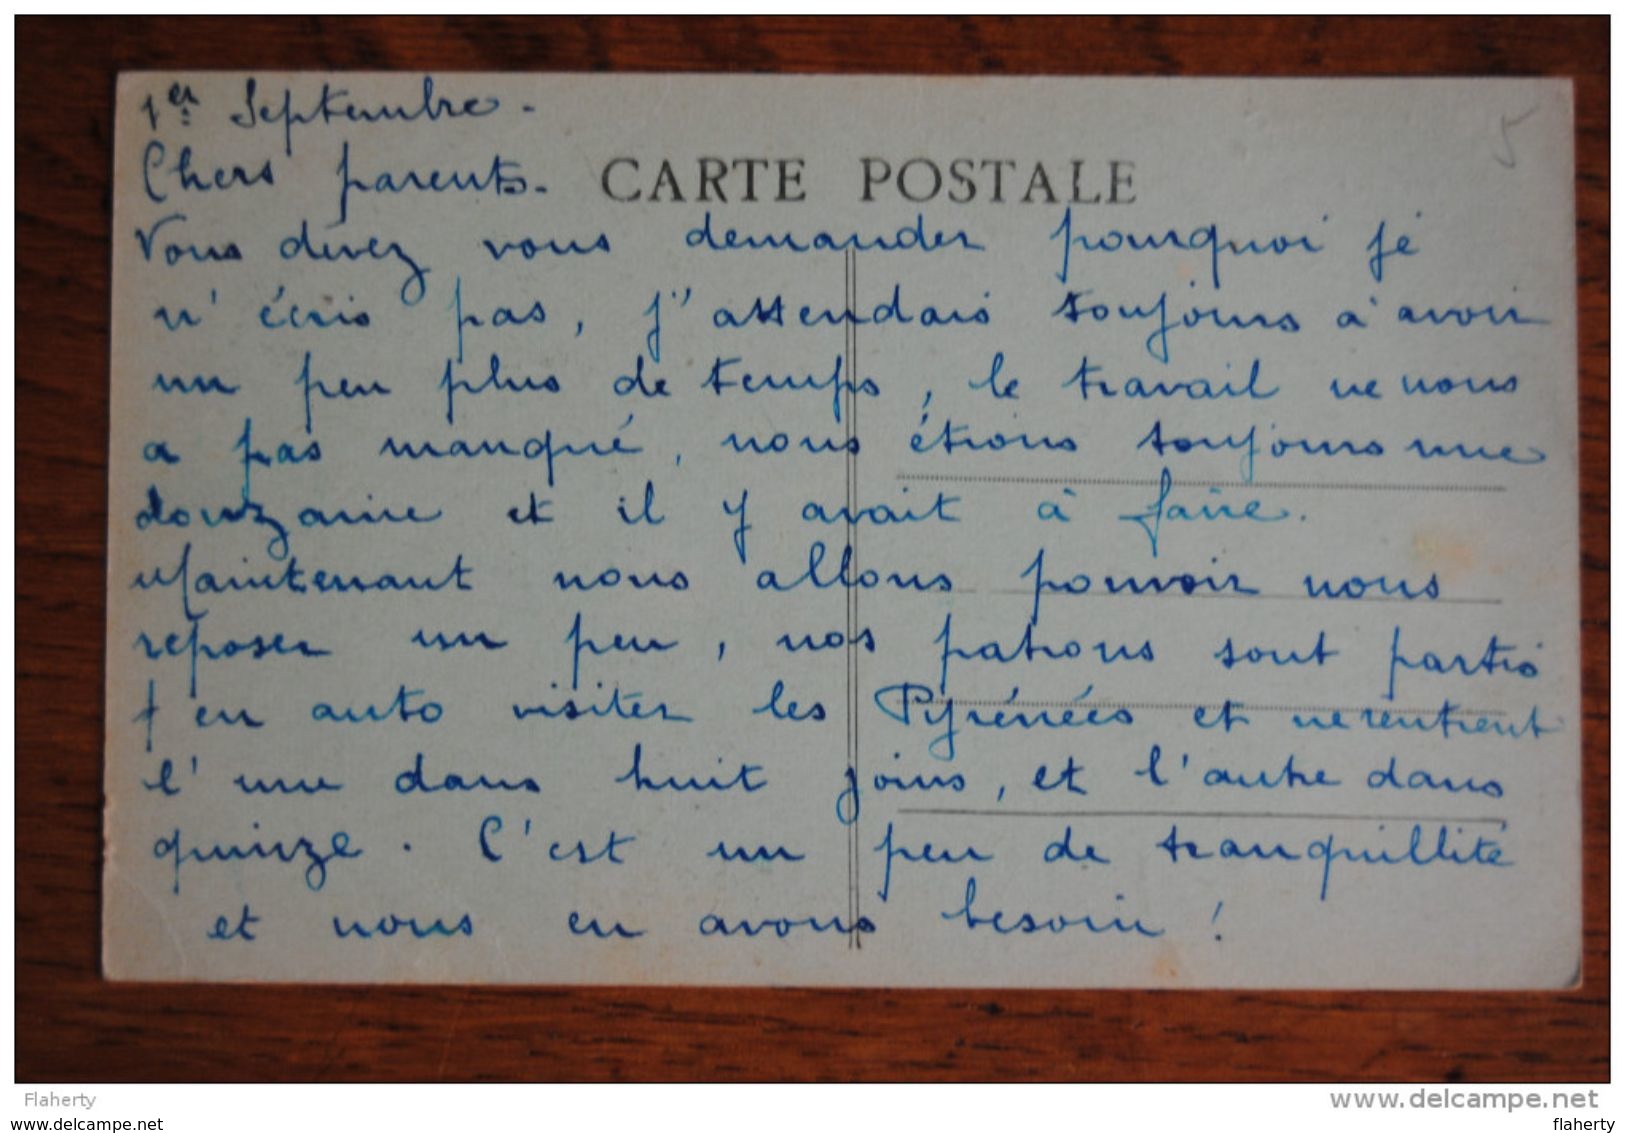 1er Septembre -
5
Chers parents -
CARTE POSTALE
Vous devez vous demander pourquoi je
n'écris pas, j'attendais toujours à avoir
un peu plus de temps, le travail ne nous
a pas manqué, nous étions toujours une
douzaine et il y avait à faire.
Maintenant nous allons pouvoir nous
reposer un peu, nos patrons sont partis
en auto visiter les Pyrénées et ne rentrent
l'une dans huit joins, et l'autre dans
quinze. C'est un peu de tranquillité
et nous en avons besoin !
Flaherty
www.delcampe.net
www.delcampe.net
flaherty